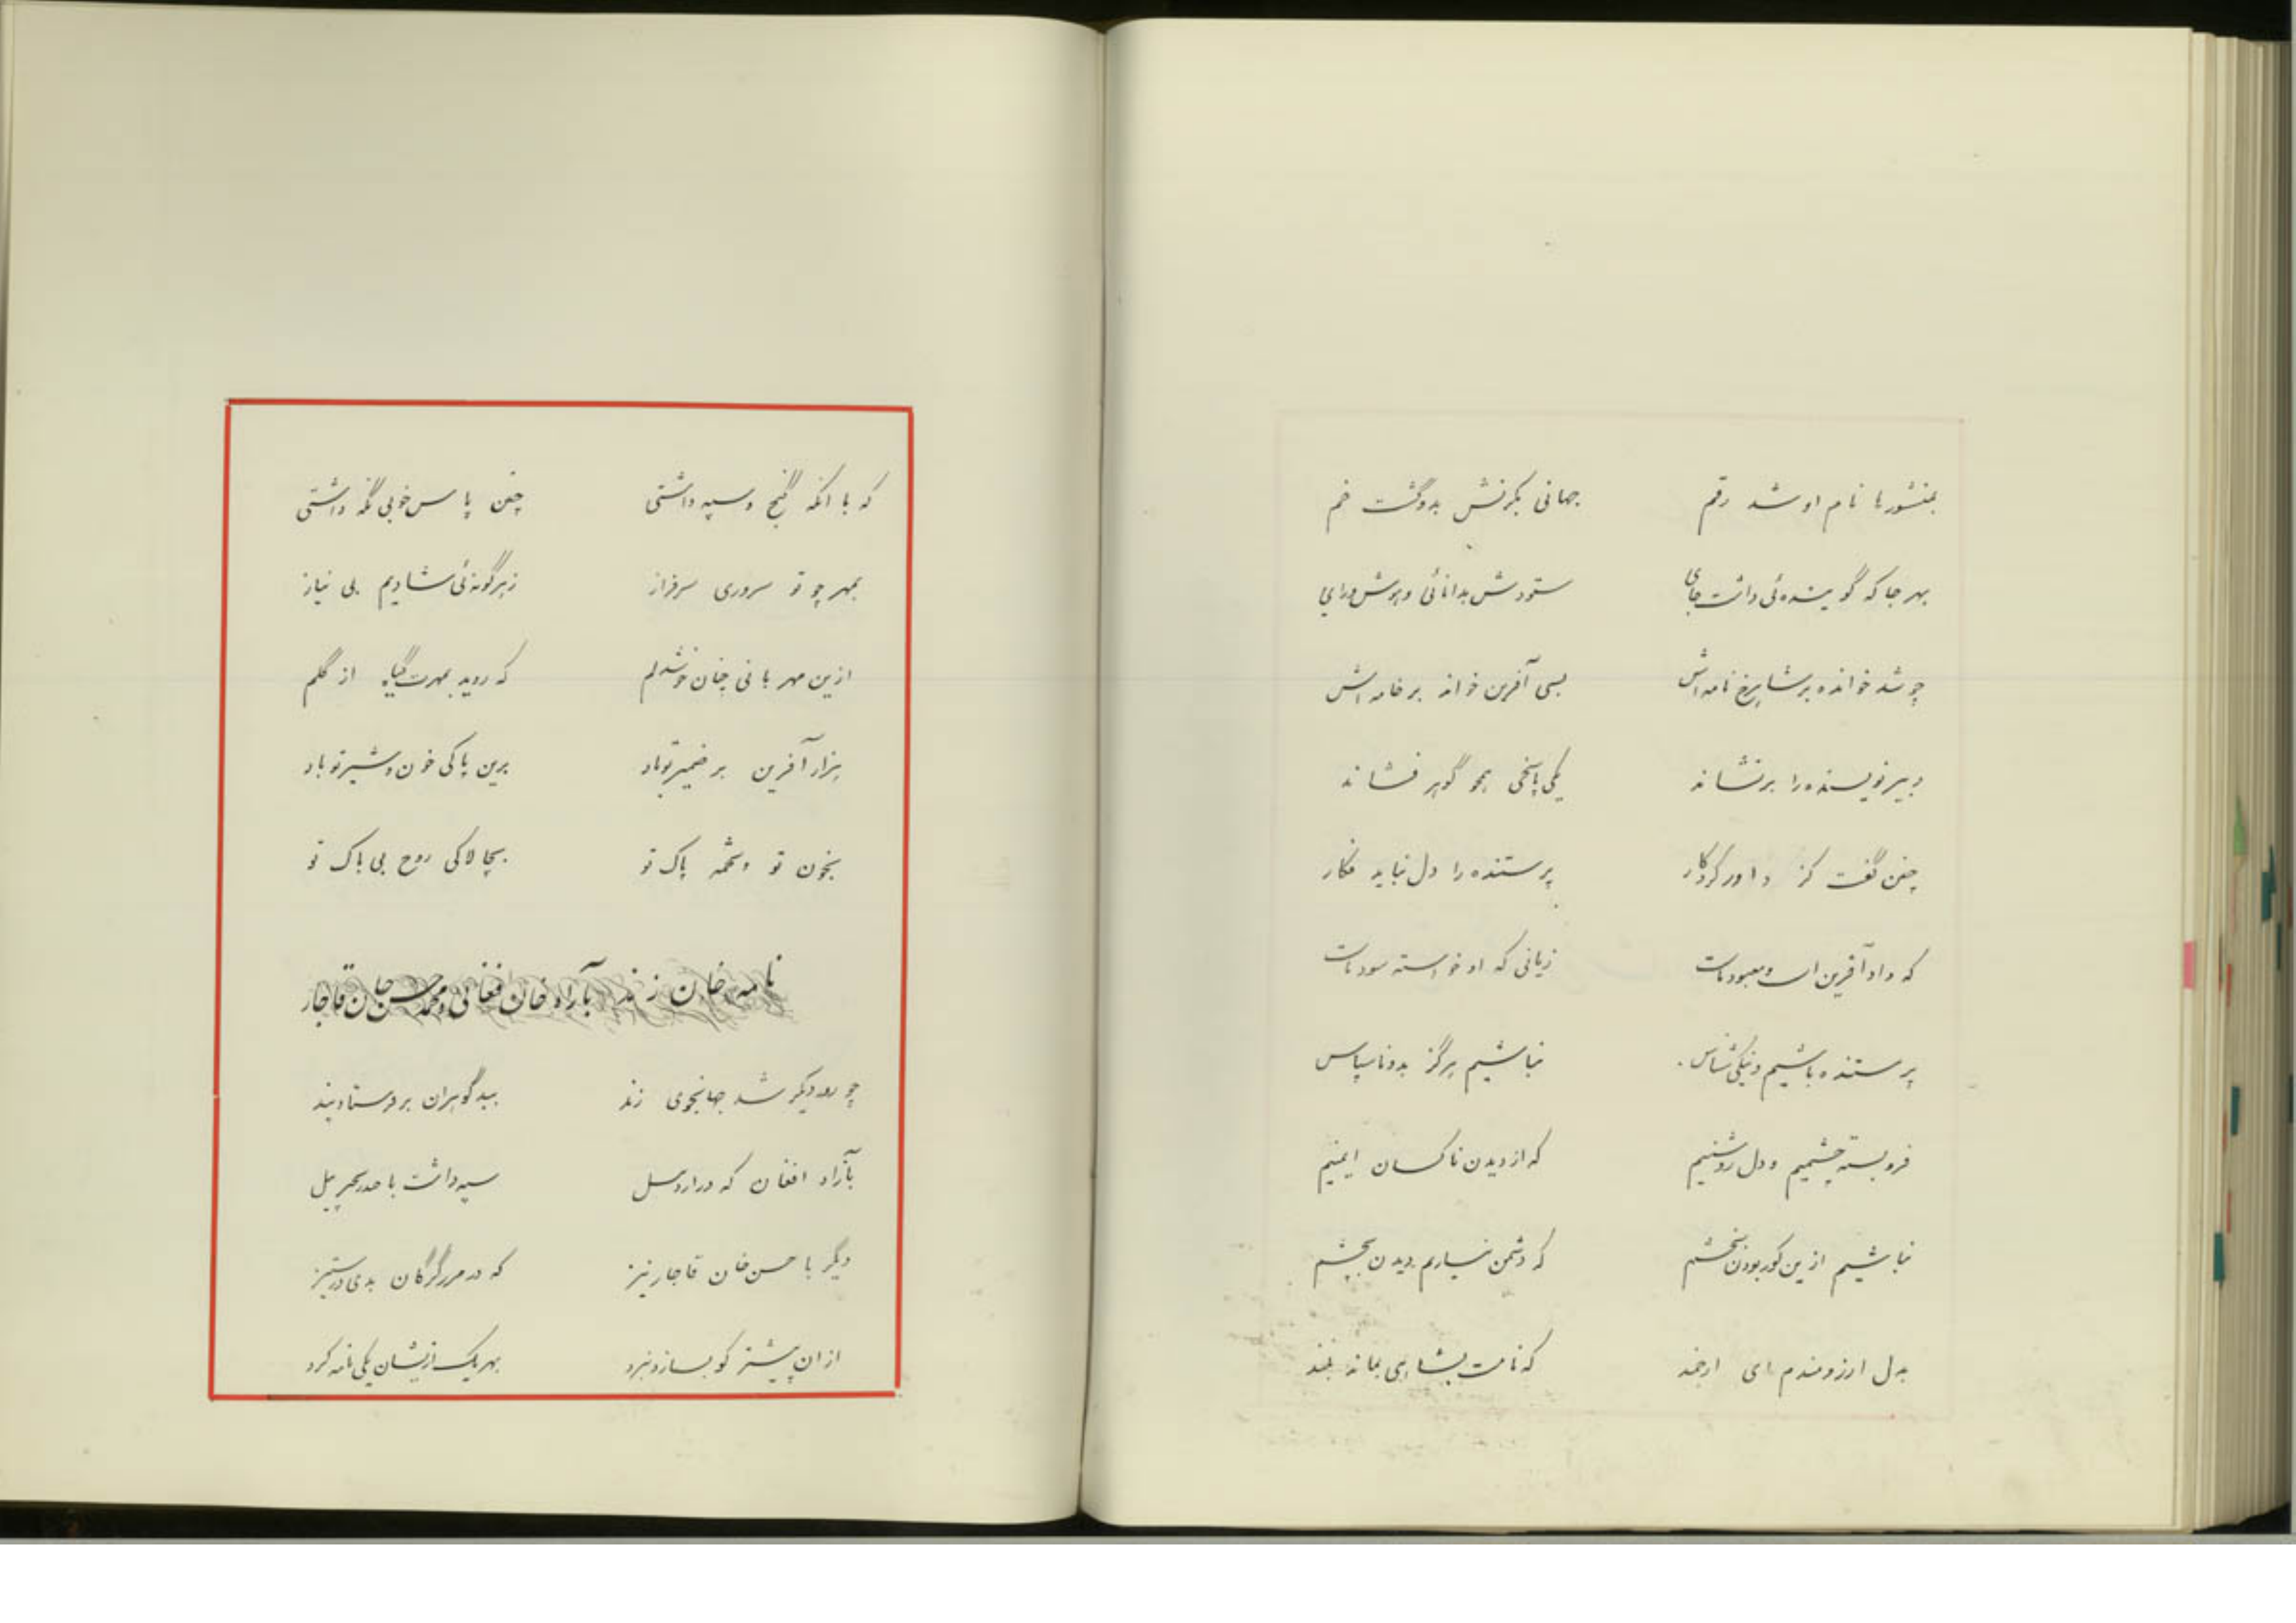 بمنشورها نام او شد رقم جهانی بکرنش بدو گشت خم
بهر جا که گوینده‌ئی داشت جای ستودش بدانائی و هوش و رای
چو شد خوانده بر شاهرخ نامه‌اش بسی آفرین خواند بر خامه‌اش
دبیر نویسنده را بر نشاند یکی پاسخی همچو گوهر فشاند
چنین گفت کز داور کردگار پرستنده را دل نباید فکار
که داد آفرین است و معبود ماست زیانی که او خواسته سود ماست
پرستنده باشیم و نیکی شناس نباشیم هرگز بدو ناسپاس
فرو بسته چشمیم و دل روشنیم که از دیدن ناکسان ایمنیم
نباشیم ازین کور بودن بخشم که دشمن نیاریم دیدن بچشم
بدل ارزومندم ای ارجمند که نامت بشاهی بماند بلند
که با انکه گنج و سپه داشتی چنین پاس خوبی نگه داشتی
بمهر چو تو سروری سرفراز زهر گونه‌ئی شادیم بی نیاز
ازین مهربانی چنان خوشدلم که روید بمهرت گیاه از گلم
هزار آفرین بر ضمیر تو باد برین پاکی خون و شیر تو باد
بخون تو و تخمه پاک تو بچالاکی روح بی باک تو
نامه خان زند بآزاد خان افغانی و محمد حسن خان قاجار
چو روز دیگر شد جهانجوی زند ببدگوهران بر فرستاد پند
بآزاد افغان که در اردبیل سپه داشت با صد
دیگر با حسن خان قاجار نیز که در مرز گرگان بدی در ستیز
از ان پیشتر کو بسازد نبرد بهر یک ازیشان یکی نامه کرد